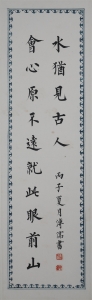 水猶見古人
會心原不遠就此眼前山
丙子夏月溥儒書